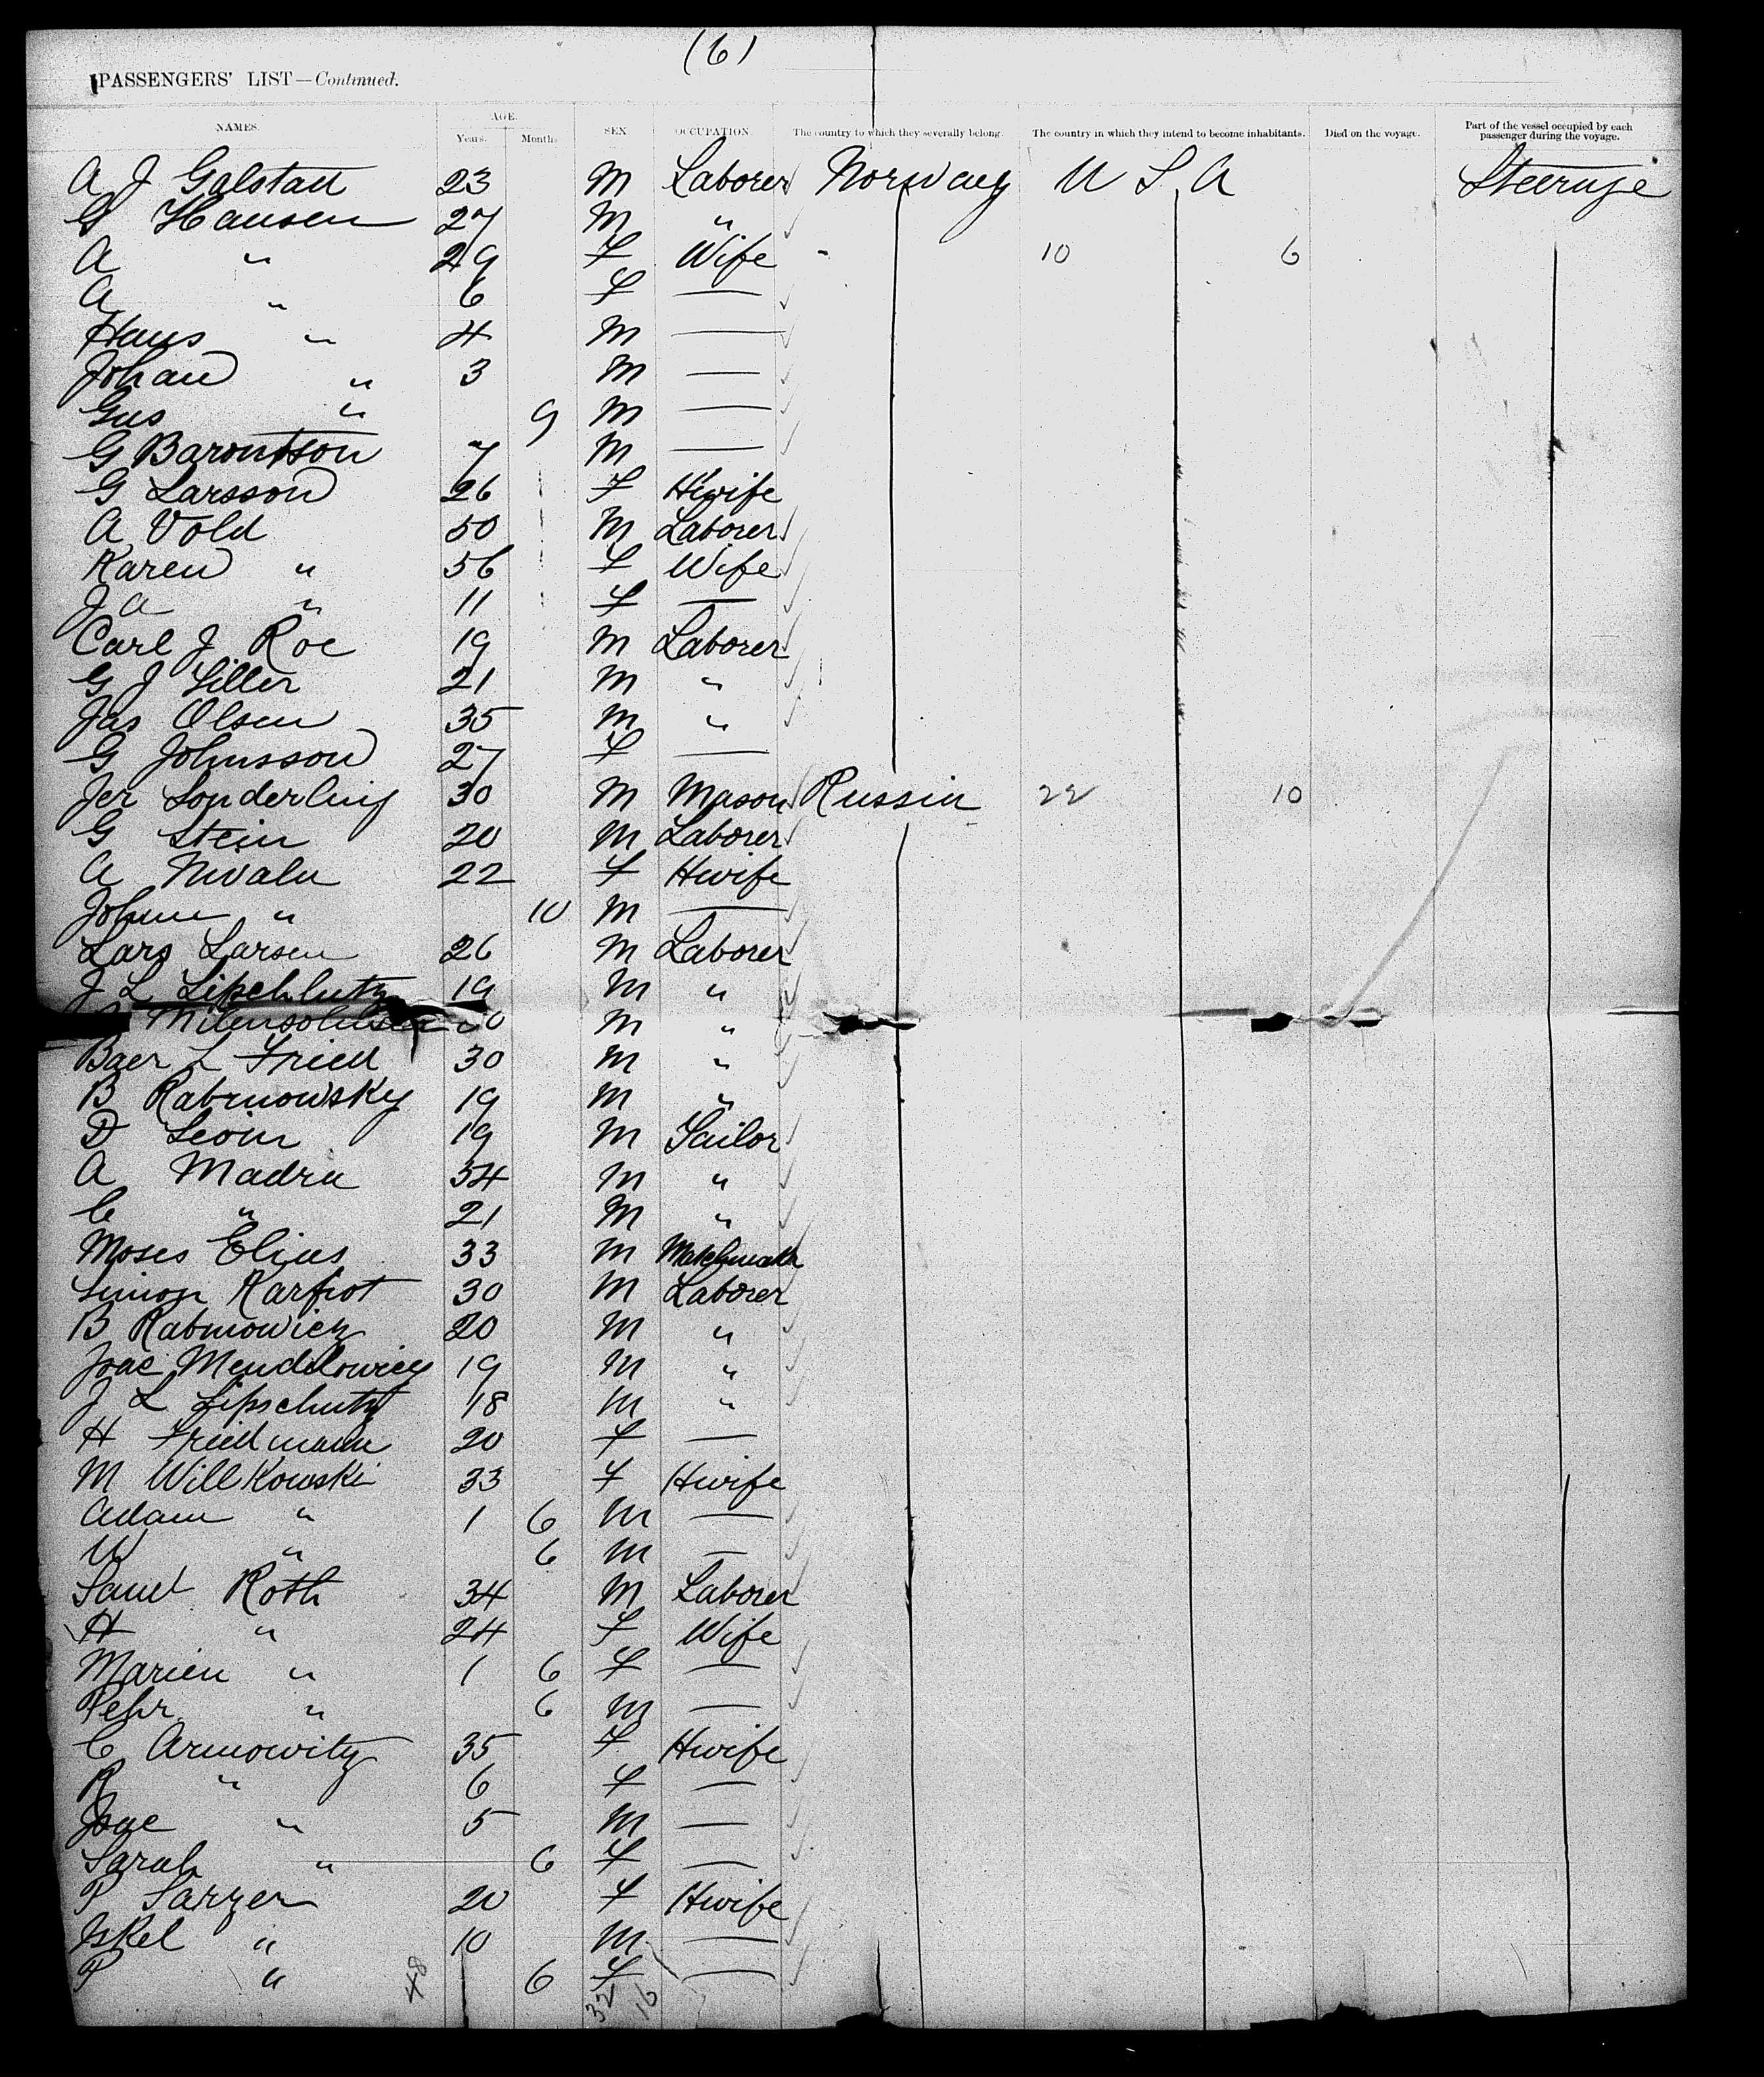 (6)
PASSENGERS' LIST—Continued.
NAMES. AGE. Years. Months SEX OCCUPATION. The country to which they severally belong. The country in which they intend to become inhabitants. Died on the voyage. Part of the vessel occupied by each passenger during the voyage.
A J Galstad 23 M Laborer Norway U S A Steerage
G Hansen 27 M "
A " 29 F Wife - 10 6
A " 6 F —
Hans " 4 M —
Johan " 3 M —
Gus " 9 M —
G Barontson 7 M —
G Larsson 26 F Hwife
A Vold 50 M Laborer
Karen " 56 F Wife
J A " 11 F —
Carl J Roe 19 M Laborer
G J Siller 21 M "
Jas Olsen 35 M "
G Johnsson 27 F —
Jer Sonderling 30 M Mason Russia 22 10
G Stein 20 M Laborer
A Nivala 22 F Hwife
" 10 M —
Lars Larsen 26 M Laborer
J L Lipschutz 19 M "
M "
Baer L Fried 30 M "
B Rabinowsky 19 M "
D 19 M Tailor
A Madra 34 M "
C " 21 M "
Moses Elias 33 M
Simon Karfiot 30 M Laborer
B Rabinowicz 20 M "
Isac Mendelowicz 19 M "
J L Lipschutz 18 M "
H Friedmann 20 F —
M Willkowski 33 F Hwife
Adam " 1 6 M —
W " 6 M —
Saml Roth 34 M Laborer
H " 24 F Wife
Marien " 1 6 F —
Pehr " 6 M —
C Aronowitz 35 F Hwife
R " 6 F —
Isac " 5 M —
Sarah " 6 F —
P Sarzen 20 F Hwife
Iskel " 10 M —
P " 6 F —
48 32 16